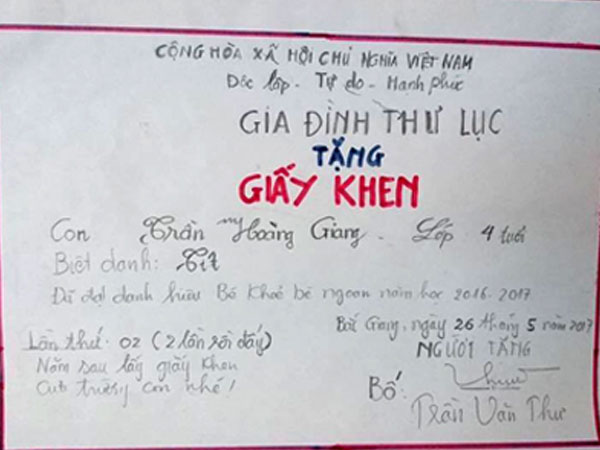 CỘNG HÒA XÃ HỘI CHỦ NGHĨA VIỆT NAM
Độc lập - Tự do - Hạnh phúc
GIA ĐÌNH THƯ LỤC
TẶNG
GIẤY KHEN
Con Trần Hoàng Giang. Lớp 4 tuổi
Biệt danh: Tít
Đã đạt danh hiệu Bé Khoẻ bé ngoan năm học 2016-2017
Lần thứ: 02 (2 lần rồi đấy)
Năm sau lấy giấy khen
của trường con nhé!
Bắc Giang, ngày 26 tháng 5 năm 2017
NGƯỜI TẶNG
Bố:
Trần Văn Thư